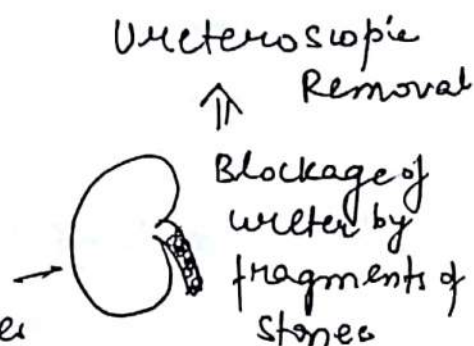 Ureteroscopic
Removal
⇑
Blockage of
ureter by
fragments of
stones
es